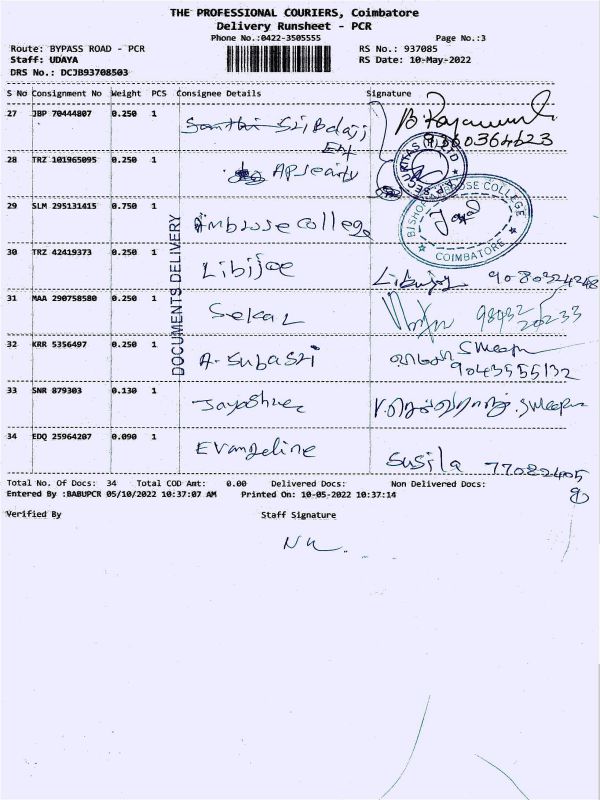 THE PROFESSIONAL COURIERS, Coimbatore
Delivery Runsheet - PCR
Phone No.:0422-3505555 Page No.:3
Route: BYPASS ROAD - PCR RS No.: 937085
Staff: UDAYA RS Date: 10-May-2022
DRS No.: DCJB93708503
S No Consignment No Weight PCS Consignee Details Signature
27 JBP 70444807 0.250 1 Santhi Sri Balaji
Ent
28 TRZ 101965095 0.250 1 AP Security
SECURITAS LTD
29 SLM 295131415 0.750 1 Ambrose College
BISHOP AMBROSE COLLEGE
COIMBATORE
30 TRZ 42419373 0.250 1 Libijoe
9080324248
31 MAA 290758580 0.250 1 Sekar
98932
20233
32 KRR 5356497 0.250 1 A. Subasri
9043555132
33 SNR 879303 0.130 1 Jayashree
34 EDQ 25964207 0.090 1 Evangeline Susila
DOCUMENTS DELIVERY
Total No. Of Docs: 34 Total COD Amt: 0.00 Delivered Docs: Non Delivered Docs:
Entered By :BABUPCR 05/10/2022 10:37:07 AM Printed On: 10-05-2022 10:37:14
Verified By Staff Signature